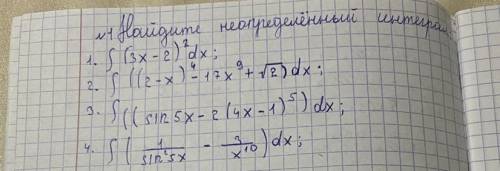 №1 Найдите неопределённый интеграл
1. ∫ (3x-2)² dx;
2. ∫ ((2-x)⁴ - 17x⁹ + √2) dx;
3. ∫ ((sin 5x - 2(4x-1)⁵) dx;
4. ∫ (1/sin²5x - 3/x¹⁰) dx;